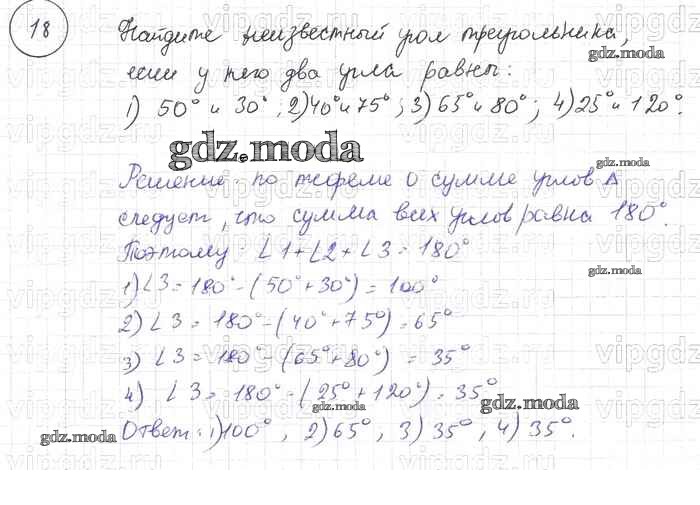 18 Найдите неизвестный угол треугольника,
если у него два угла равны:
1) 50° и 30°, 2) 40° и 75°; 3) 65° и 80°; 4) 25° и 120°.
Решение: по теореме о сумме углов ∆
следует, что сумма всех углов равна 180°.
Поэтому: ∠1+∠2+∠3=180°
1) ∠3=180°-(50°+30°)=100°
2) ∠3=180°-(40°+75°)=65°
3) ∠3=180°-(65°+80°)=35°
4) ∠3=180°-(25°+120°)=35°
Ответ: 1) 100°, 2) 65°, 3) 35°, 4) 35°.
gdz.moda
vipgdz.ru